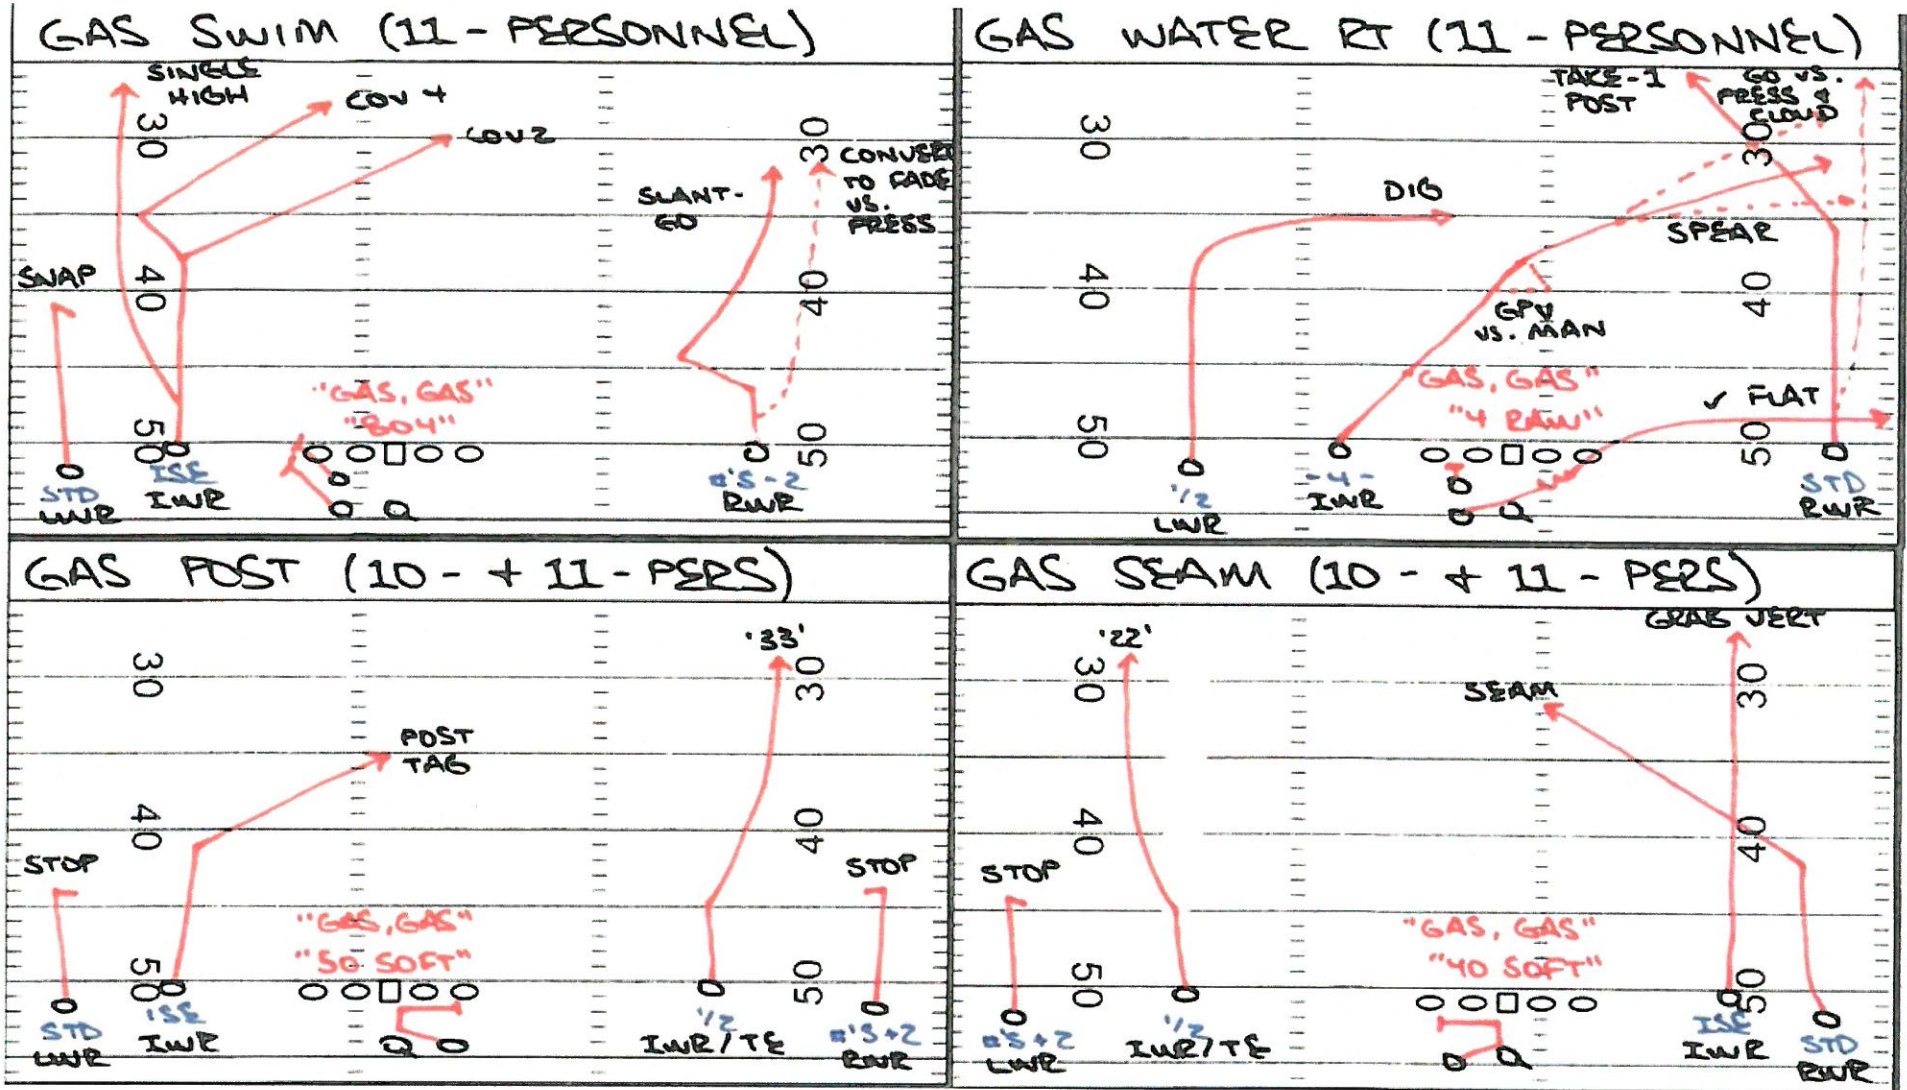 GAS SWIM (11-PERSONNEL)
SINGLE
HIGH
COV 4
COV 2
30
30
CONVERT
TO FADE
VS.
PRESS
SLANT-
GO
SNAP
40
40
"GAS, GAS"
"804"
50
50
STD
LWR
ISE
IWR
#'S-2
RWR
GAS WATER RT (11-PERSONNEL)
TAKE-1
POST
GO VS.
PRESS &
CLOUD
30
30
DIG
SPEAR
40
40
VS. MAN
"GAS, GAS"
"4 RAW"
✓ FLAT
50
50
1/2
LWR
-4-
IWR
STD
RWR
GAS POST (10- + 11-PERS)
'33'
30
30
POST
TAG
40
40
STOP
STOP
"GAS, GAS"
"50 SOFT"
50
50
STD
LWR
ISE
IWR
1/2
IWR/TE
#'S+2
RWR
GAS SEAM (10- + 11-PERS)
'22'
GRAB VERT
30
30
SEAM
40
40
STOP
"GAS, GAS"
"40 SOFT"
50
50
#'S+2
LWR
1/2
IWR/TE
ISE
IWR
STD
RWR